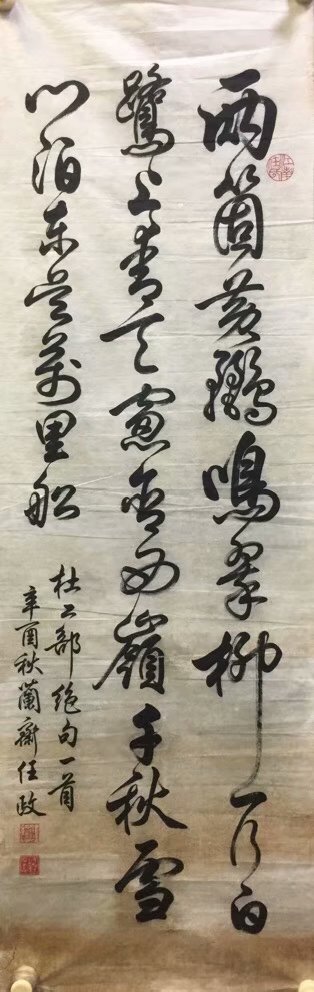 兩箇黃鸝鳴翠柳一行白
鷺上青天窗含西嶺千秋雪
門泊东吳萬里船
杜工部絕句一首
辛酉秋蘭齋任政